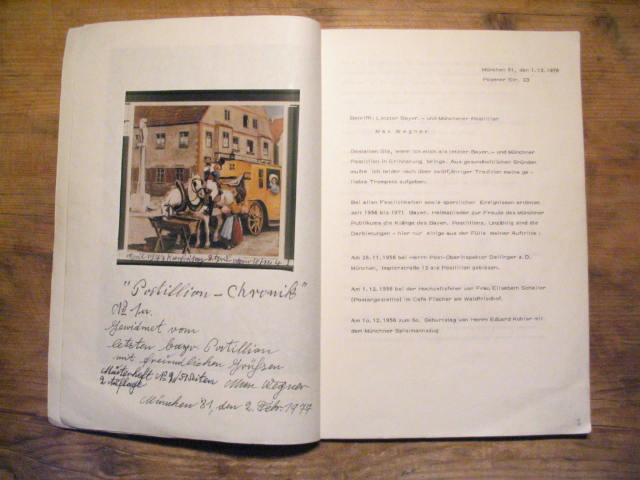 "Postillion-Chronik"
Gewidmet vom
letzten bayr. Postillion
mit freundlichen Grüßen
Musterheft
2. Auflage Max Wegner
München 81, den 2. Febr. 1977
München 81, den 1.12.1976
Betrifft: Letzter Bayer.- und Münchener Postillion
Max Wegner
Gestatten Sie, wenn ich mich als letzter Bayer.- und Münchner
Postillion in Erinnerung bringe. Aus gesundheitlichen Gründen
mußte ich leider nach über zwölfjähriger Tradition meine ge-
liebte Trompete aufgeben.
Bei allen Festlichkeiten sowie sportlichen Ereignissen ertönten
seit 1956 bis 1971 Bayer. Heimatlieder zur Freude des Münchner
Publikums die Klänge des Bayer. Postillions. Unzählig sind die
Darbietungen - hier nur einige aus der Fülle meiner Auftritte :
Am 25.11.1956 bei Herrn Post-Oberinspektor Dallinger a.D.
München, Implerstraße 12 als Postillion geblasen.
Am 1.12.1956 bei der Hochzeitsfeier von Frau Elisabeth Schaller
(Postangestellte) im Cafe Fischer am Waldfriedhof.
Am 16.12.1956 zum 50. Geburtstag von Herrn Eduard Kohler mit
dem Münchner Spielmannszug